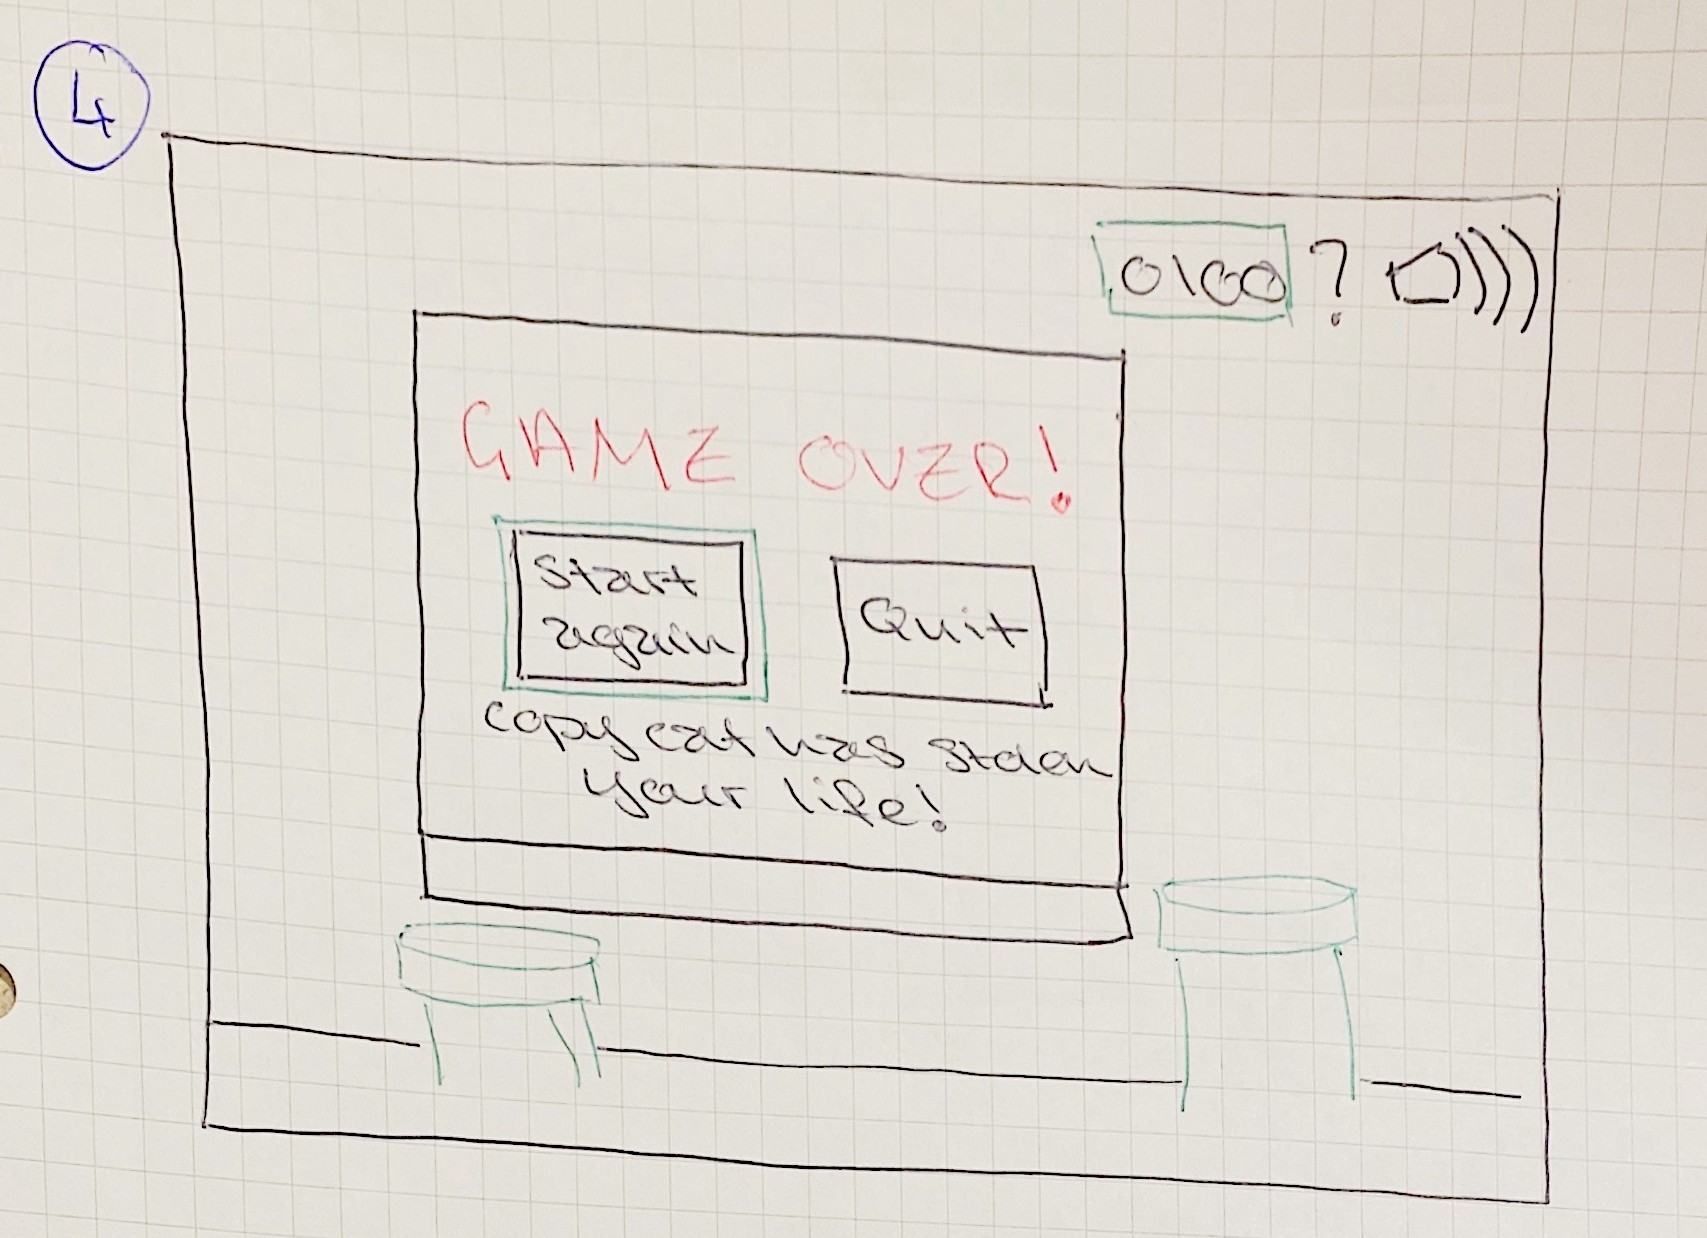 4
0100 ?
GAME OVER!
Start
again
Quit
copy cat has stolen
your life!